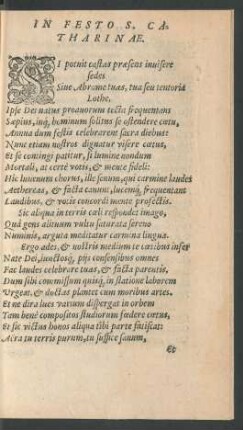 IN FESTO S. CA-
THARINAE.
SI potuit castas præsens inuisere
sedes
Siue Abrame tuas, tua seu tentoria
Lothe.
Ipse Dei natus proauorum tecta frequentans
Sæpius, inq; hominum solitus se ostendere cœtu,
Annua dum festis celebrarent sacra diebus:
Nunc etiam nostros dignatur visere cœtus,
Et se coniungi patitur, si lumine nondum
Mortali, at certè votis, & mente fideli:
Hic iuuenum chorus, ille senum, qui carmine laudes
Aethereas, & facta canunt, lucemq; frequentant
Laudibus, & vocis concordi mente profectis.
Sic aliqua in terris cæli respondet imago,
Quà gens alituum vultu saturata sereno
Numinis, arguta meditatur carmina lingua.
Ergo ades, & nostris medium te cœtibus infer
Nate Dei, iunctosq; pijs consensibus omnes
Fac laudes celebrare tuas, & facta parentis,
Dum sibi commissum quisq; in statione laborem
Vrgeat, & doctas plantet cum moribus artes.
Et ne dira lues varium dispergat in orbem
Tam benè compositos studiorum fœdere cœtus,
Et sic victus honos aliqua tibi parte fatiscat:
Aëra tu terris purum, tu suffice sanum,
Et